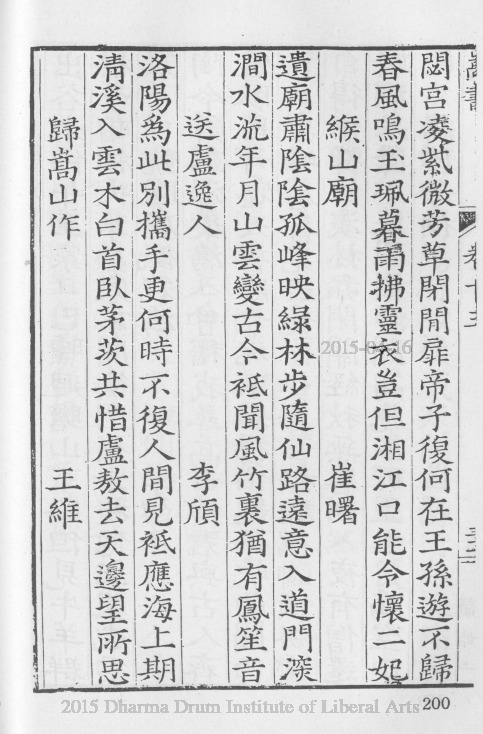 閟宮凌紫微芳草閉閒扉帝子復何在王孫遊不歸
春風鳴玉珮暮雨拂靈衣豈但湘江口能令懷二妃
緱山廟 崔曙
遺廟肅陰陰孤峰映綠林步隨仙路遠意入道門深
澗水流年月山雲變古今祗聞風竹裏猶有鳳笙音
送盧逸人 李頎
洛陽為此別攜手更何時不復人間見祗應海上期
淸溪入雲木白首臥茅茨共惜盧敖去天邊望所思
歸嵩山作 王維
2015-04-16
2015 Dharma Drum Institute of Liberal Arts
200